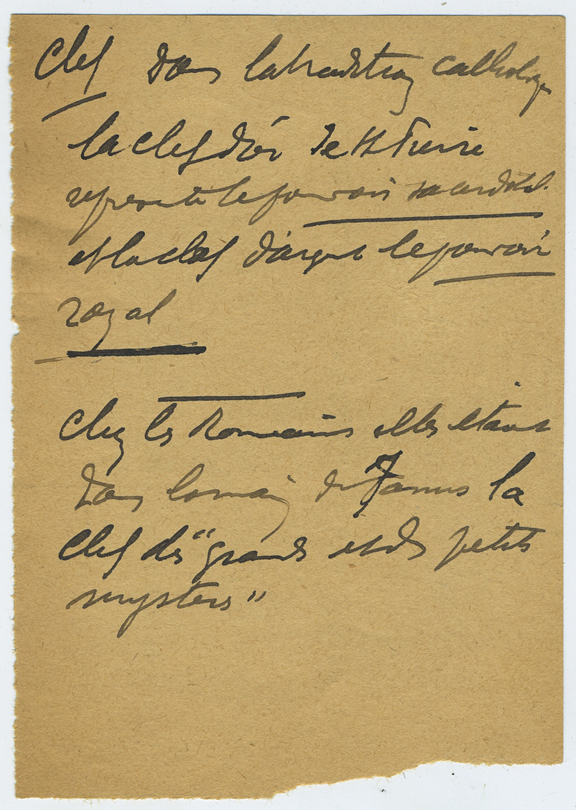 Clef dans la tradition catholique
la clef d'or de St Pierre
represente le pouvoir sacerdotal
et la clef d'argent le pouvoir
royal
Chez les Romains elles étaient
dans la main de Janus la
clef des "grands et des petits
mysteres"